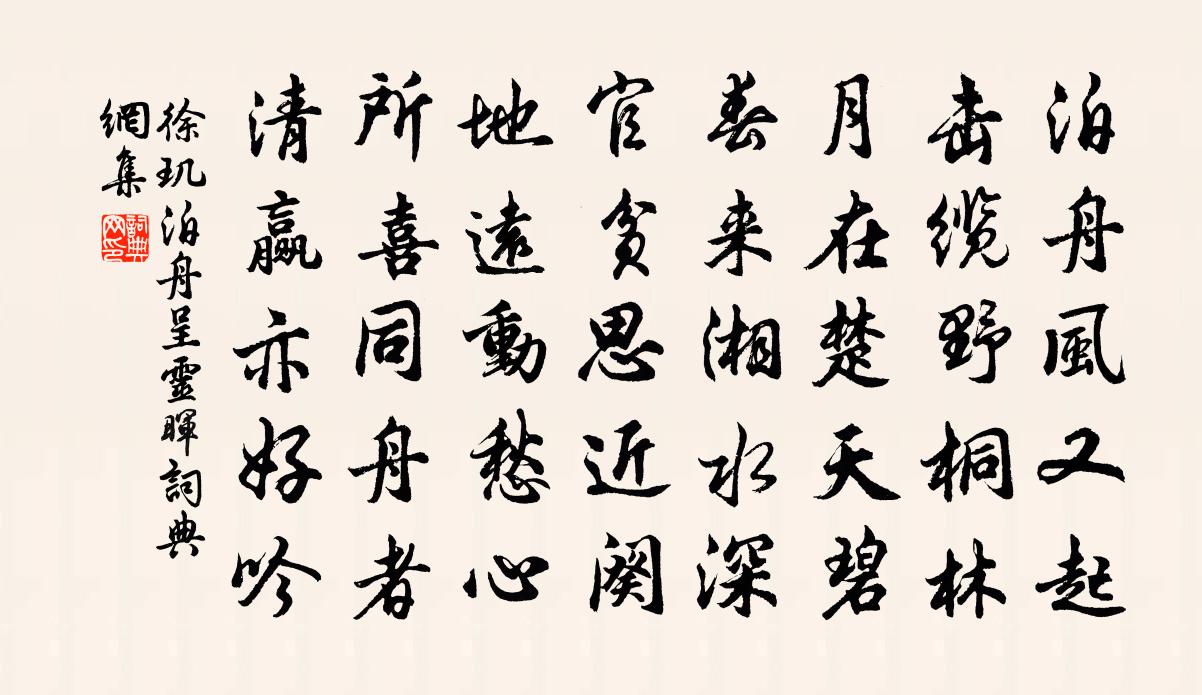 泊舟風又起
击缆野桐林
月在楚天碧
春来湘水深
官贫思近阙
地遠動愁心
所喜同舟者
清羸亦好吟
徐玑泊舟呈靈暉詞典
網集
詞典
网印